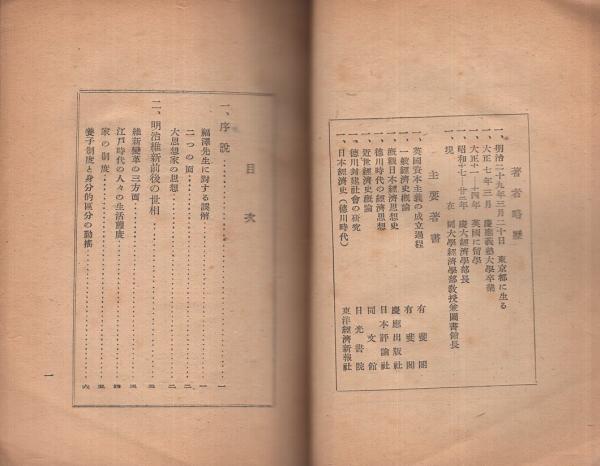 著者略歴
一、明治二十九年三月二十日 東京都に生る
一、大正七年三月 慶應義塾大學卒業
一、大正十一－十四年 英國に留學
一、昭和十七－廿二年 慶大經濟學部長
一、現 在 同大學經濟學部敎授兼圖書館長
主要著書
一、英國資本主義の成立過程 有斐閣
一、一般經濟史槪論 有斐閣
一、槪觀日本經濟思想史 慶應出版社
一、德川時代の經濟思想 日本評論社
一、近世經濟史槪論 同文館
一、德川封建社會の硏究 日光書院
一、日本經濟史（德川時代） 東洋經濟新報社
目次
一、序說 一
福澤先生に對する誤解 一
二つの面 二
大思想家の思想 二
二、明治維新前後の世相 三
維新變革の三方面 三
江戶時代の人々の生活態度 四
家の制度 五
養子制度と身分的區分の動搖 六
一